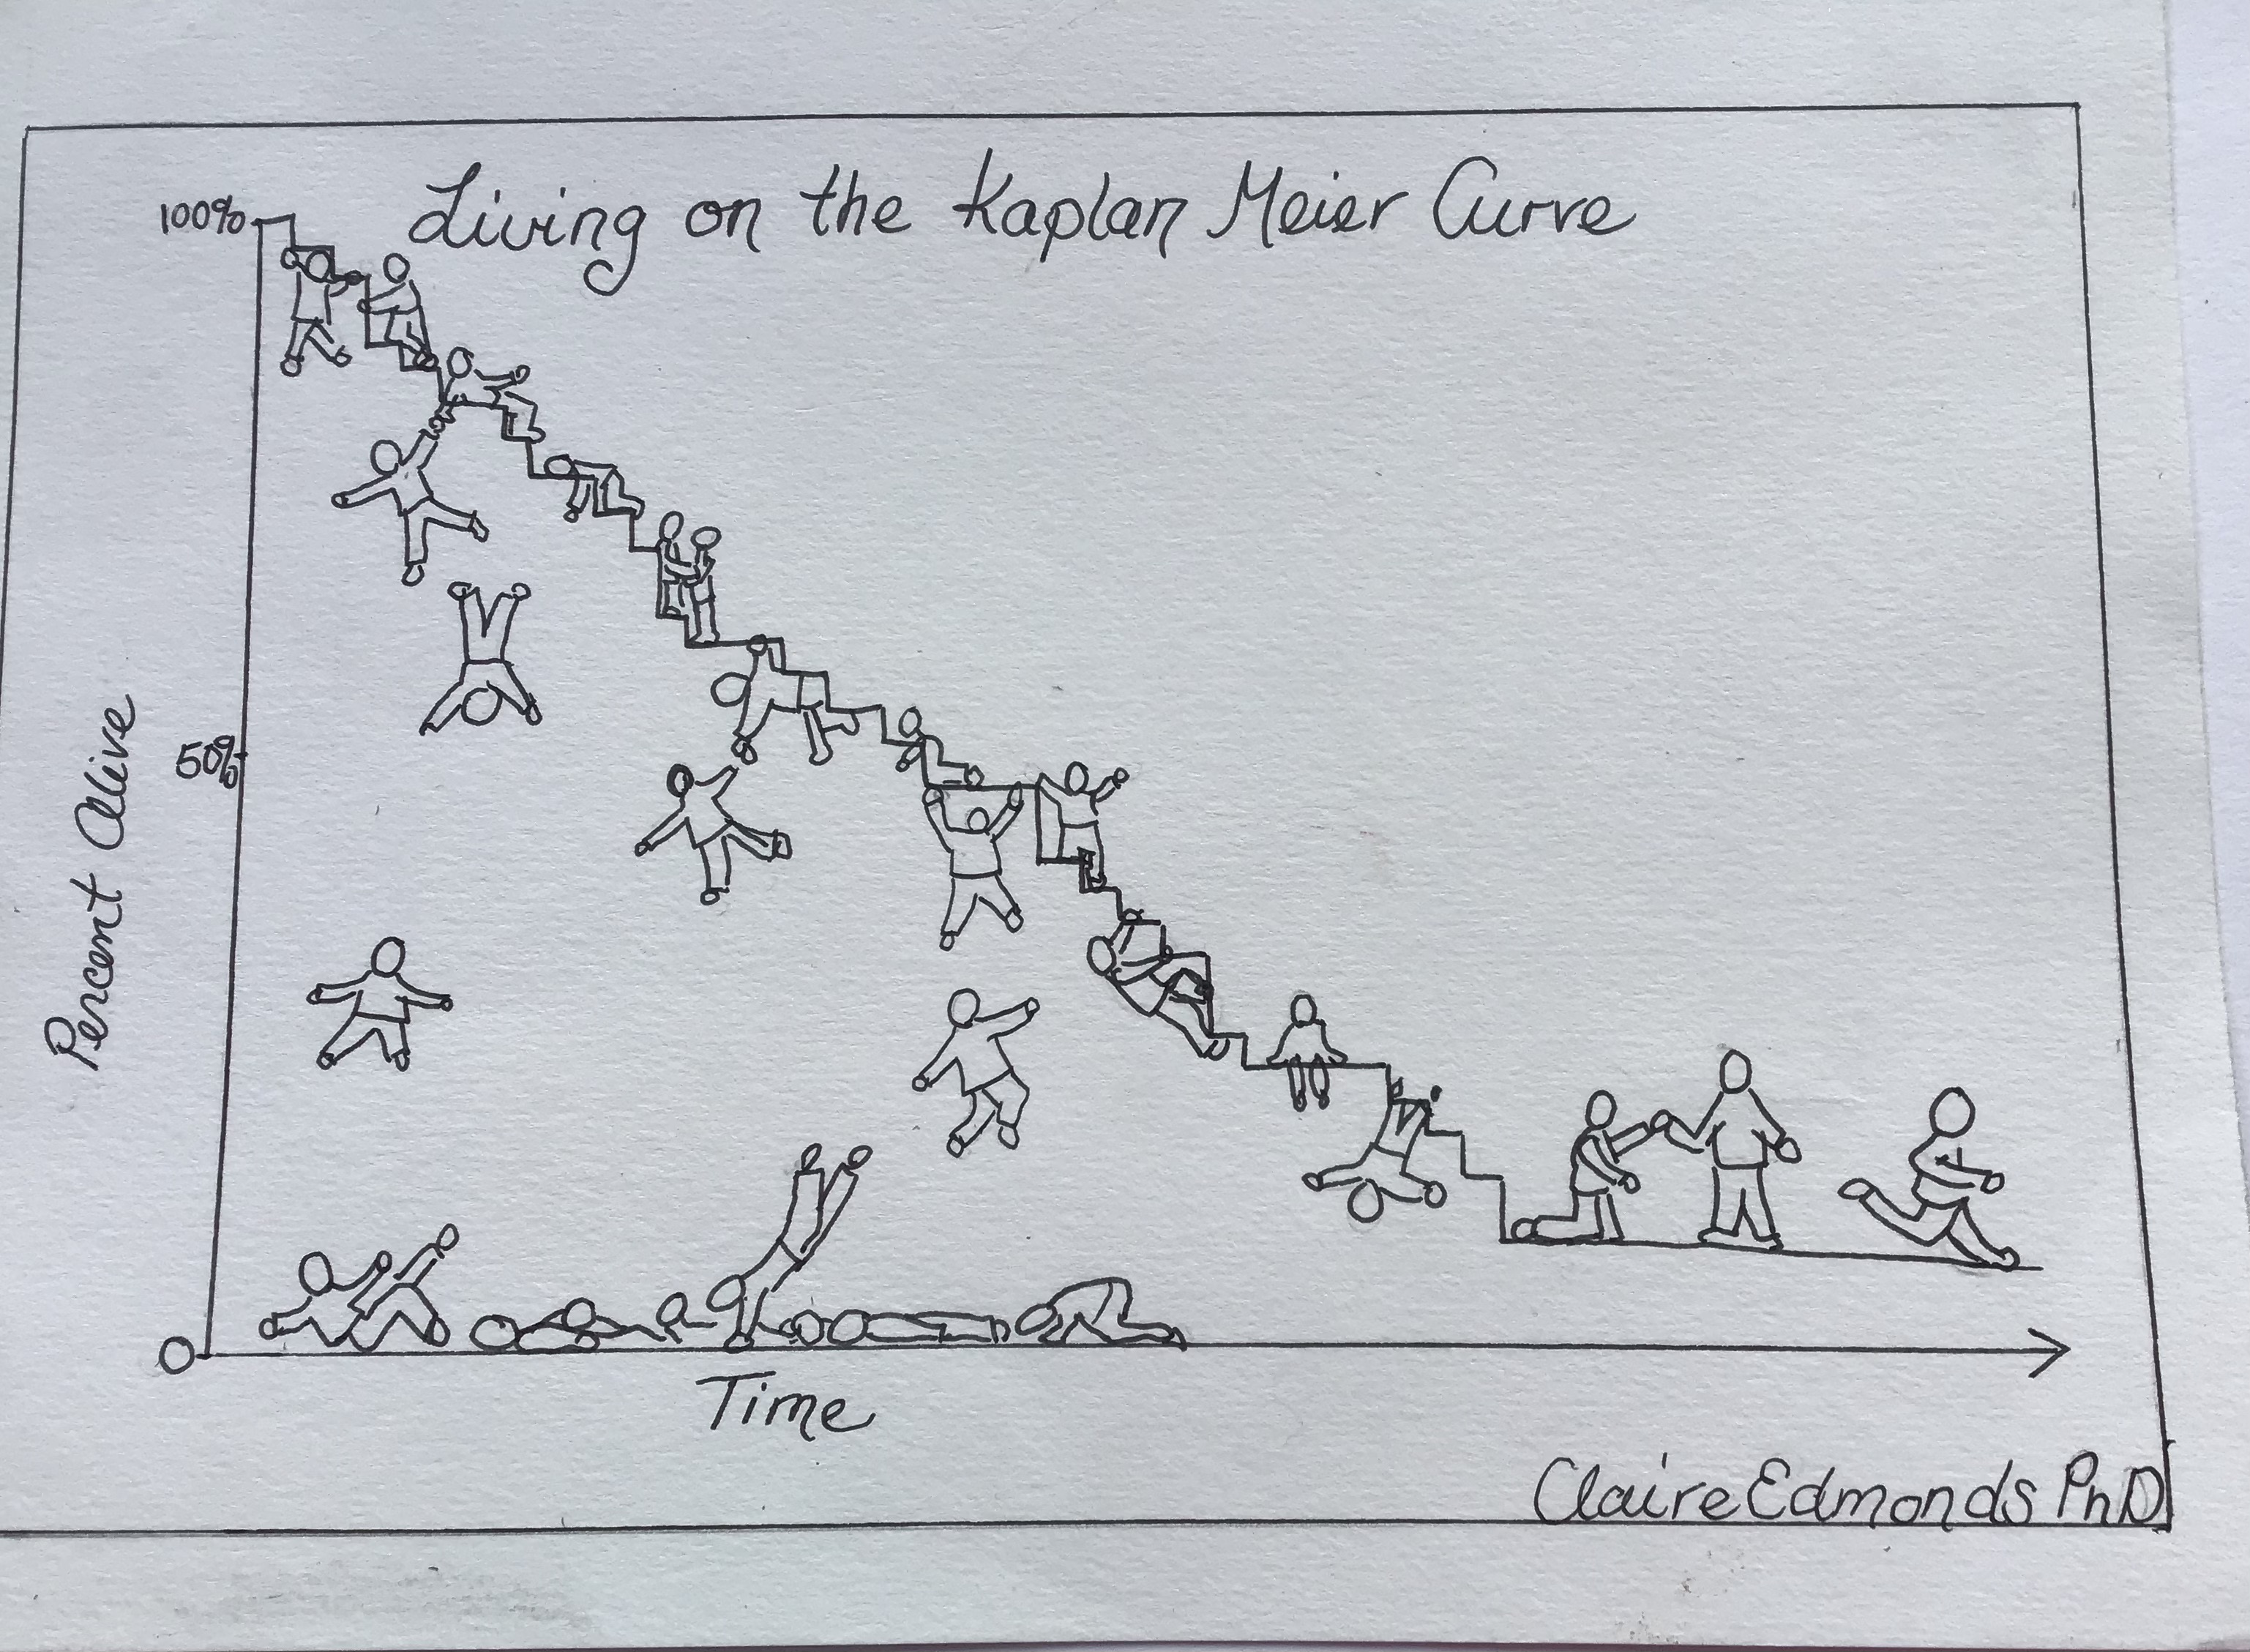 Living on the Kaplan Meier Curve
100%
50%
Percent Alive
0
Time
Claire Edmonds PhD